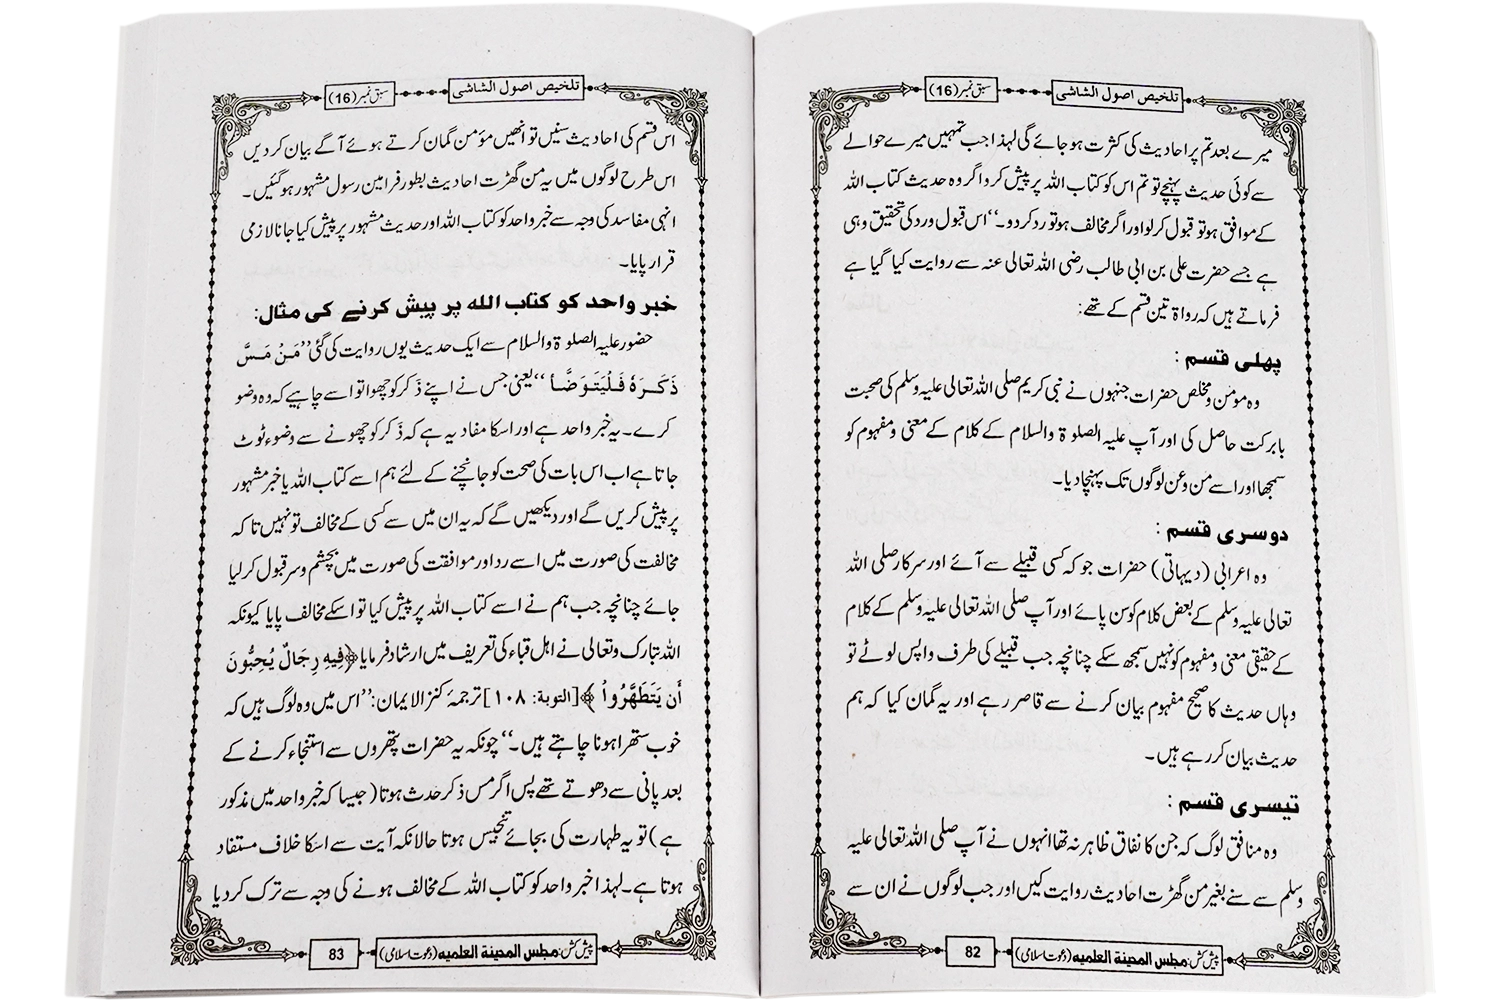 تلخیص اصول الشاشی
سبق نمبر (16)
میرے بعد تم پر احادیث کی کثرت ہو جائے گی لہذا جب تمہیں میرے حوالے
سے کوئی حدیث پہنچے تو تم اس کو کتاب اللہ پر پیش کرو اگر وہ حدیث کتاب اللہ
کے موافق ہو تو قبول کر لو اور اگر مخالف ہو تو رد کر دو۔‘‘ اس قبول ورد کی تحقیق وہی
ہے جسے حضرت علی بن ابی طالب رضی اللہ تعالی عنہ سے روایت کیا گیا ہے
فرماتے ہیں کہ رواۃ تین قسم کے تھے:
پہلی قسم :
وہ مومن و مخلص حضرات جنہوں نے نبی کریم صلی اللہ تعالی علیہ وسلم کی صحبت
بابرکت حاصل کی اور آپ علیہ الصلوۃ والسلام کے کلام کے معنی و مفہوم کو
سمجھا اور اسے من و عن لوگوں تک پہنچا دیا۔
دوسری قسم :
وہ اعرابی (دیہاتی) حضرات جو کہ کسی قبیلے سے آئے اور سرکار صلی اللہ
تعالی علیہ وسلم کے بعض کلام کو سن پائے اور آپ صلی اللہ تعالی علیہ وسلم کے کلام
کے حقیقی معنی و مفہوم کو نہیں سمجھ سکے چنانچہ جب قبیلے کی طرف واپس لوٹے تو
وہاں حدیث کا صحیح مفہوم بیان کرنے سے قاصر رہے اور یہ گمان کیا کہ ہم
حدیث بیان کر رہے ہیں۔
تیسری قسم :
وہ منافق لوگ کہ جن کا نفاق ظاہر نہ تھا انہوں نے آپ صلی اللہ تعالی علیہ
وسلم سے سنے بغیر من گھڑت احادیث روایت کیں اور جب لوگوں نے ان سے
پیش کش: مجلس المدینۃ العلمیہ (دعوت اسلامی)
82
تلخیص اصول الشاشی
سبق نمبر (16)
اس قسم کی احادیث سنیں تو انھیں مؤمن گمان کرتے ہوئے آگے بیان کر دیں
اس طرح لوگوں میں یہ من گھڑت احادیث بطور فرامین رسول مشہور ہو گئیں۔
انہی مفاسد کی وجہ سے خبر واحد کو کتاب اللہ اور حدیث مشہور پر پیش کیا جانا لازمی
قرار پایا۔
خبر واحد کو کتاب اللہ پر پیش کرنے کی مثال:
حضور علیہ الصلوۃ والسلام سے ایک حدیث یوں روایت کی گئی ’’مَنْ مَسَّ
ذَكَرَهٗ فَلْيَتَوَضَّأْ‘‘ یعنی جس نے اپنے ذَکر کو چھوا تو اسے چاہیے کہ وہ وضو
کرے۔ یہ خبر واحد ہے اور اسکا مفاد یہ ہے کہ ذَکر کو چھونے سے وضوء ٹوٹ
جاتا ہے اب اس بات کی صحت کو جانچنے کے لئے ہم اسے کتاب اللہ یا خبر مشہور
پر پیش کریں گے اور دیکھیں گے کہ یہ ان میں سے کسی کے مخالف تو نہیں تا کہ
مخالفت کی صورت میں اسے رد اور موافقت کی صورت میں بچشم و سر قبول کر لیا
جائے چنانچہ جب ہم نے اسے کتاب اللہ پر پیش کیا تو اسکے مخالف پایا کیونکہ
اللہ تبارک و تعالی نے اہل قباء کی تعریف میں ارشاد فرمایا ﴿فِيهِ رِجَالٌ يُحِبُّونَ
أَن يَتَطَهَّرُواْ﴾ [التوبۃ: ۱۰۸] ترجمۂ کنز الایمان: ’’اس میں وہ لوگ ہیں کہ
خوب ستھرا ہونا چاہتے ہیں۔‘‘ چونکہ یہ حضرات پتھروں سے استنجاء کرنے کے
بعد پانی سے دھوتے تھے پس اگر مس ذکر حدث ہوتا (جیسا کہ خبر واحد میں مذکور
ہے) تو یہ طہارت کی بجائے تنجیس ہوتا حالانکہ آیت سے اسکا خلاف مستفاد
ہوتا ہے۔ لہذا خبر واحد کو کتاب اللہ کے مخالف ہونے کی وجہ سے ترک کر دیا
پیش کش: مجلس المدینۃ العلمیہ (دعوت اسلامی)
83